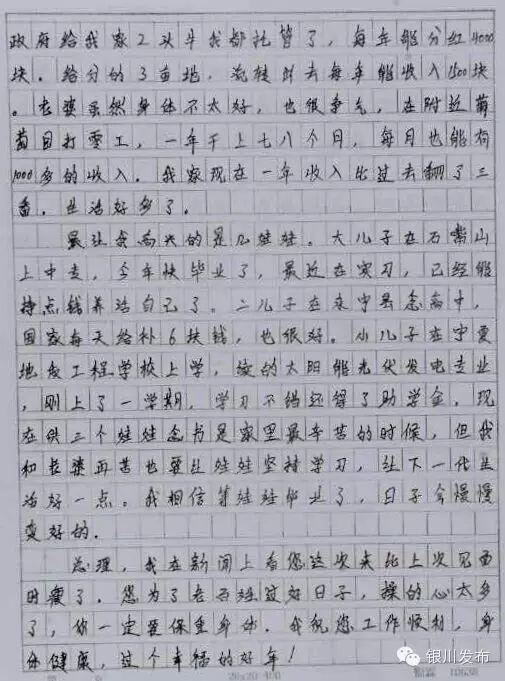 政府给我家2头牛我都托管了，每年能分红4000
块。给分的3亩地，流转出去每年能收入1500块
。老婆虽然身体不太好，也很争气，在附近葡
萄园打零工，一年干上七八个月，每月也能有
1000多的收入。我家现在一年收入比过去翻了三
番，生活好多了。
最让我高兴的是几娃娃。大儿子在石嘴山
上中专，今年快毕业了，最近在实习，已经能
挣点钱养活自己了。二儿子在永宁县念高中，
国家每天给补6块钱，也很好。小儿子在宁夏
地质工程学校上学，读的太阳能光伏发电专业
，刚上了一学期，学习不错还得了助学金，现
在供三个娃娃念书是家里最辛苦的时候，但我
和老婆再苦也要让娃娃坚持学习，让下一代生
活好一点。我相信等娃娃毕业了，日子会慢慢
变好的。
总理，我在新闻上看您这次来比上次见面
时瘦了。您为了老百姓过好日子，操的心太多
了，你一定要保重身体。我祝您工作顺利，身
体健康，过个幸福的好年！
银川发布
20×20=400